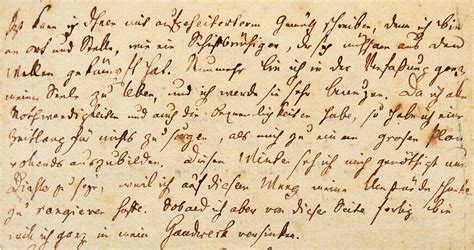 Jetzt kann ich Ihnen mit aufgeheitertem Gemüth schreiben, denn ich bin
an Ort und Stelle, wie ein Schiffbrüchiger, der sich mühsam aus den
Wellen gekämpft hat. Nunmehr bin ich in der Verfaßung ganz
meiner Seele zu leben, und ich werde sie sehr benuzen. Da ich alle
Nothwendigkeiten und auch die Bequemlichkeiten habe, so habe ich eine
Zeitlang für nichts zu sorgen, als mich zu einem großen Plan
vorhends auszubilden. Diesen Winter seh ich mich genöthigt nur
Dichter zu seyn, weil ich auf diesem Weeg meine Umstände schneller
zu rangieren hoffe. Sobald ich aber von dieser Seite fertig bin
will ich ganz in mein Handwerk versinken.